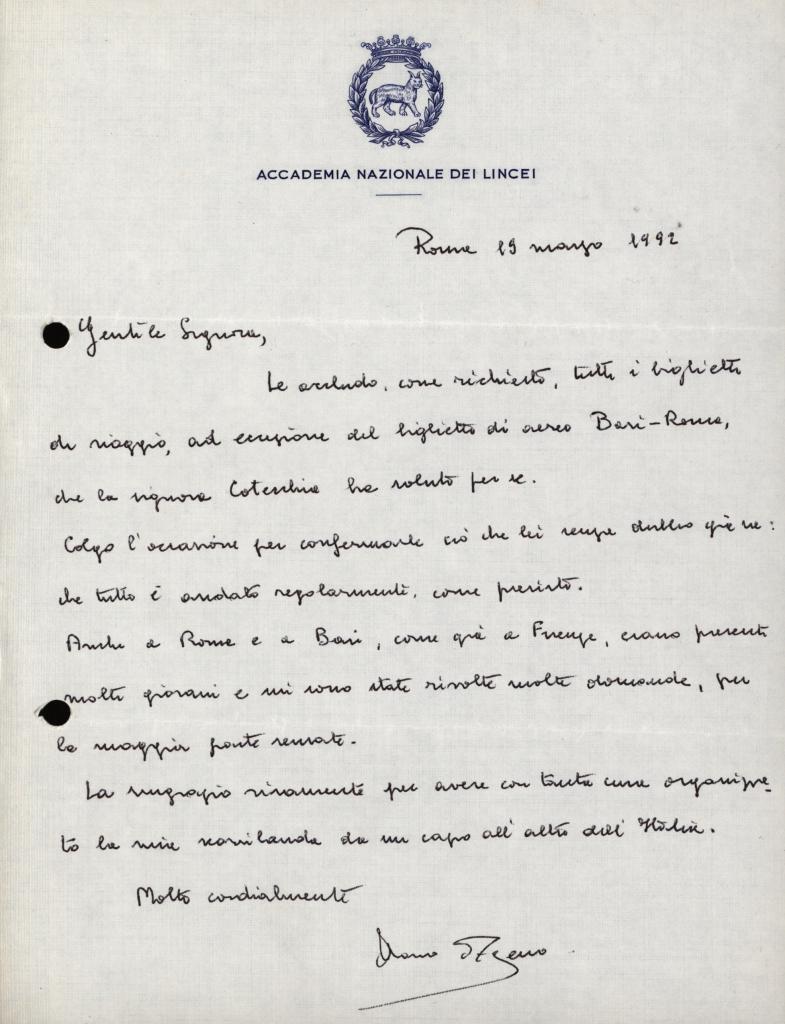 ACCADEMIA NAZIONALE DEI LINCEI
Roma 19 marzo 1992
Gentile Signora,
Le accludo, come richiesto, tutti i biglietti
di viaggio, ad eccezione del biglietto di aereo Bari-Roma,
che la signora Cotecchia ha voluto per se.
Colgo l'occasione per confermarle ciò che lei senza dubbio già sa:
che tutto è andato regolarmente, come previsto.
Anche a Roma e a Bari, come già a Firenze, erano presenti
molti giovani e mi sono state rivolte molte domande, per
la maggior parte sensate.
La ringrazio vivamente per avere con tanta cura organizza-
to la mia scivolanda da un capo all'altro dell'Italia.
Molto cordialmente
Mario Ageno